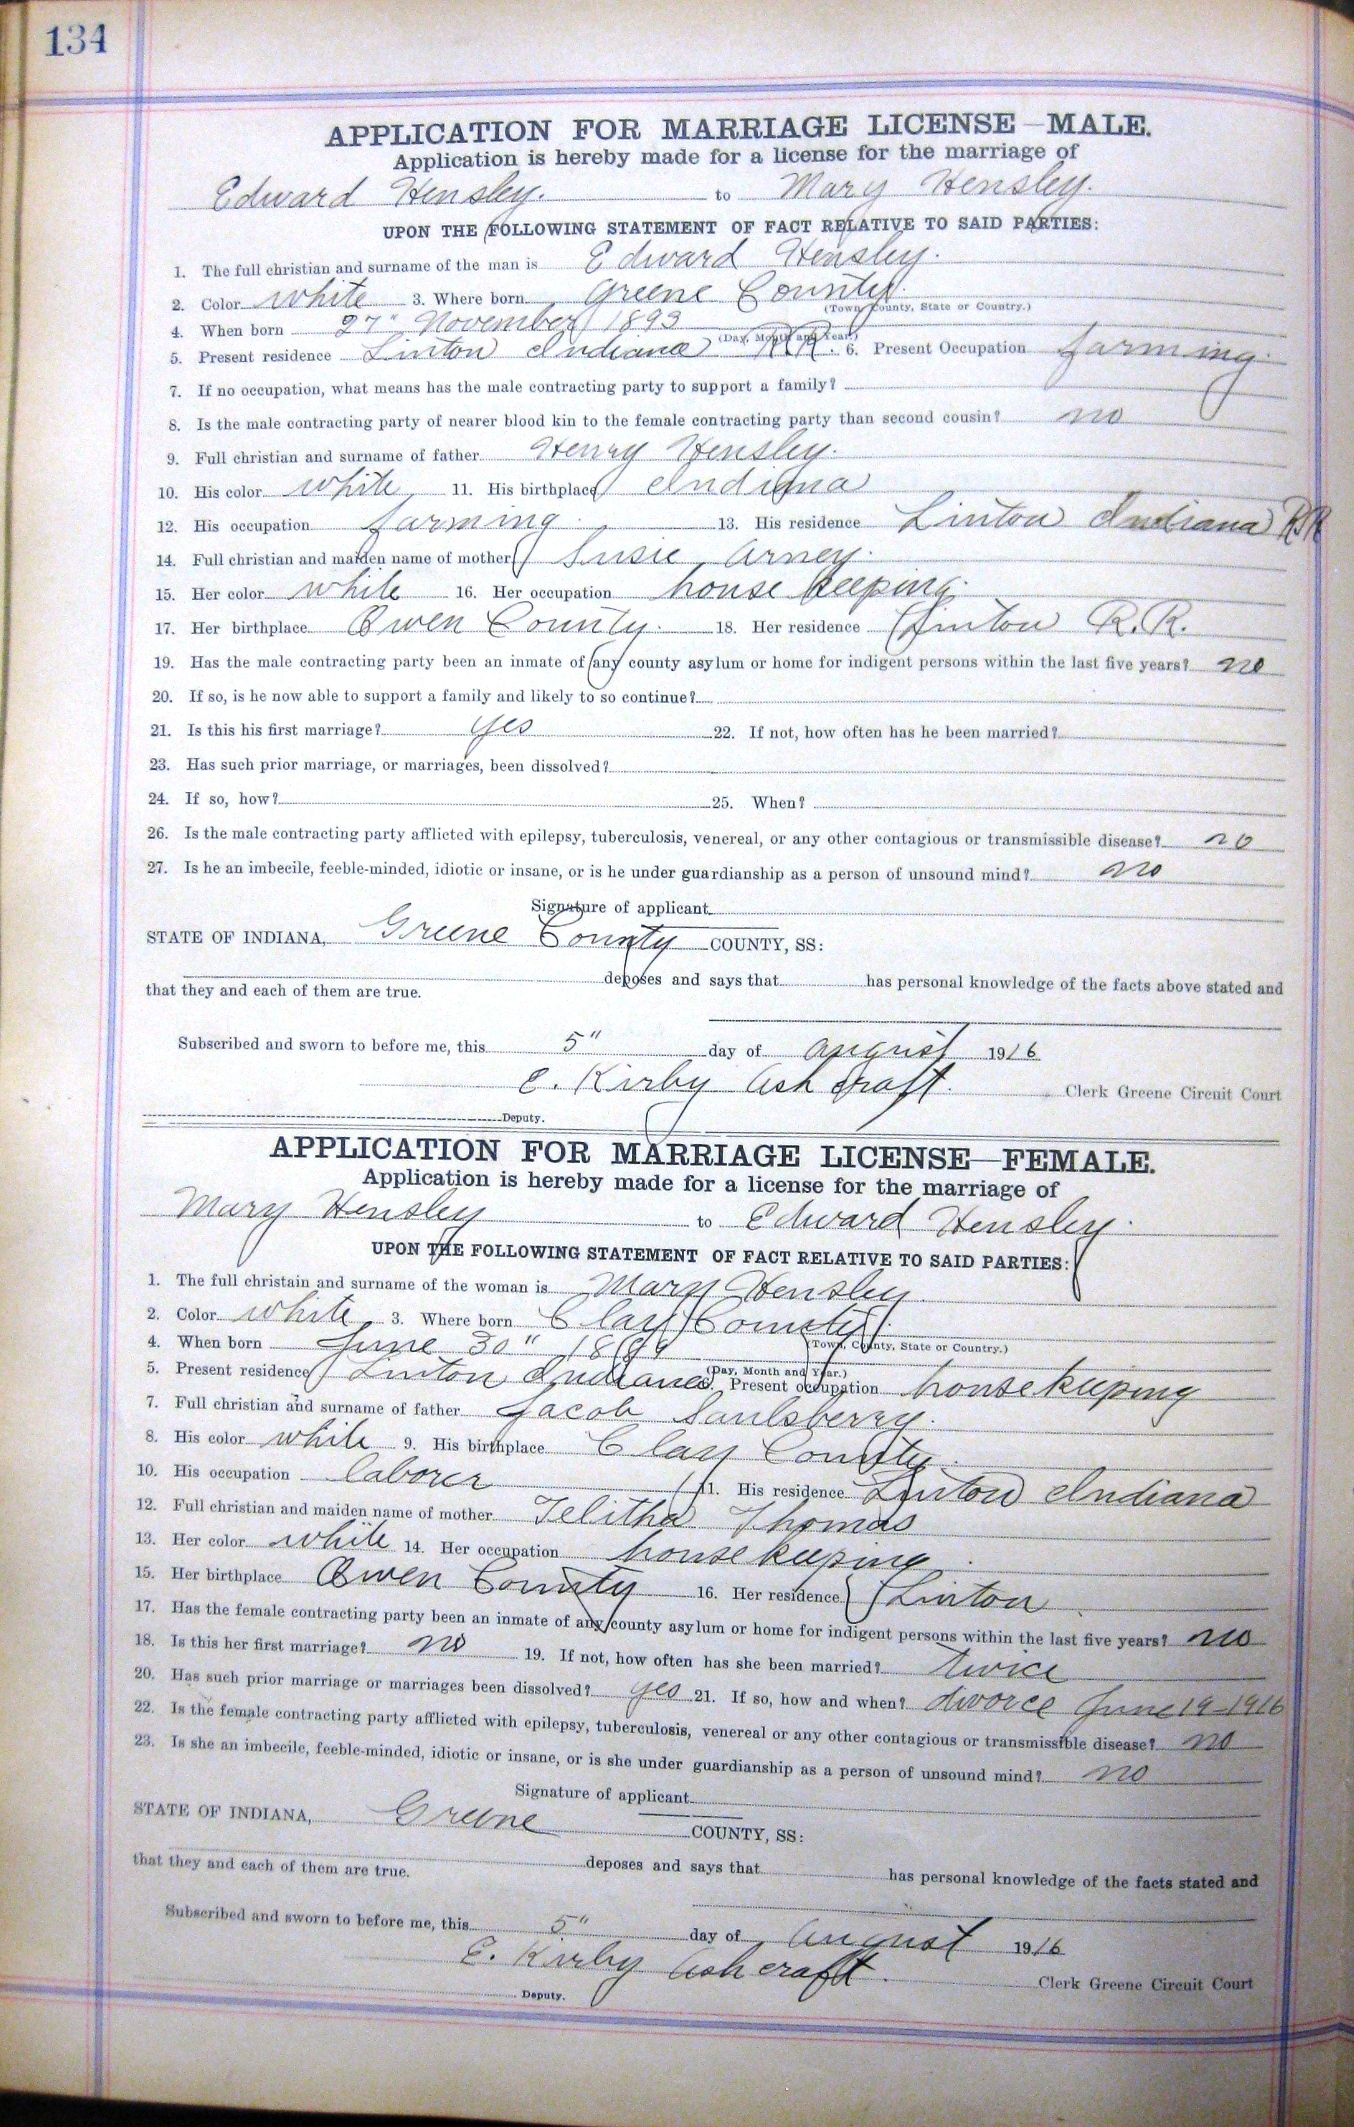 134
APPLICATION FOR MARRIAGE LICENSE—MALE.
Application is hereby made for a license for the marriage of
Edward Hensley. to Mary Hensley.
UPON THE FOLLOWING STATEMENT OF FACT RELATIVE TO SAID PARTIES:
1. The full christian and surname of the man is Edward Hensley.
2. Color white 3. Where born Greene County.
(Town, County, State or Country.)
4. When born 27" November 1893
(Day, Month and Year.)
5. Present residence Linton Indiana R.R. 6. Present Occupation farming.
7. If no occupation, what means has the male contracting party to support a family?
8. Is the male contracting party of nearer blood kin to the female contracting party than second cousin? no
9. Full christian and surname of father Henry Hensley.
10. His color white 11. His birthplace Indiana
12. His occupation farming. 13. His residence Linton Indiana R.R
14. Full christian and maiden name of mother Susie Arney.
15. Her color white 16. Her occupation house keeping.
17. Her birthplace Owen County. 18. Her residence Linton R.R.
19. Has the male contracting party been an inmate of any county asylum or home for indigent persons within the last five years? no
20. If so, is he now able to support a family and likely to so continue?
21. Is this his first marriage? yes 22. If not, how often has he been married?
23. Has such prior marriage, or marriages, been dissolved?
24. If so, how? 25. When?
26. Is the male contracting party afflicted with epilepsy, tuberculosis, venereal, or any other contagious or transmissible disease? no
27. Is he an imbecile, feeble-minded, idiotic or insane, or is he under guardianship as a person of unsound mind? no
Signature of applicant
STATE OF INDIANA, Greene County COUNTY, SS:
deposes and says that has personal knowledge of the facts above stated and
that they and each of them are true.
Subscribed and sworn to before me, this 5" day of August 1916
E. Kirby Ashcraft. Clerk Greene Circuit Court
Deputy.
APPLICATION FOR MARRIAGE LICENSE—FEMALE.
Application is hereby made for a license for the marriage of
Mary Hensley to Edward Hensley.
UPON THE FOLLOWING STATEMENT OF FACT RELATIVE TO SAID PARTIES:
1. The full christain and surname of the woman is Mary Hensley
2. Color white 3. Where born Clay County.
(Town, County, State or Country.)
4. When born June 30"
(Day, Month and Year.)
5. Present residence Linton Indiana 6. Present occupation housekeeping
7. Full christian and surname of father Jacob Saulsberry.
8. His color white 9. His birthplace Clay County.
10. His occupation laborer 11. His residence Linton Indiana
12. Full christian and maiden name of mother Telitha Thomas
13. Her color white 14. Her occupation housekeeping.
15. Her birthplace Owen County 16. Her residence Linton.
17. Has the female contracting party been an inmate of any county asylum or home for indigent persons within the last five years? no
18. Is this her first marriage? no 19. If not, how often has she been married? twice
20. Has such prior marriage or marriages been dissolved? yes 21. If so, how and when? divorce June 19-1916
22. Is the female contracting party afflicted with epilepsy, tuberculosis, venereal or any other contagious or transmissible disease? no
23. Is she an imbecile, feeble-minded, idiotic or insane, or is she under guardianship as a person of unsound mind? no
Signature of applicant
STATE OF INDIANA, Greene COUNTY, SS:
deposes and says that has personal knowledge of the facts stated and
that they and each of them are true.
Subscribed and sworn to before me, this 5" day of August 1916
E. Kirby Ashcraft. Clerk Greene Circuit Court
Deputy.